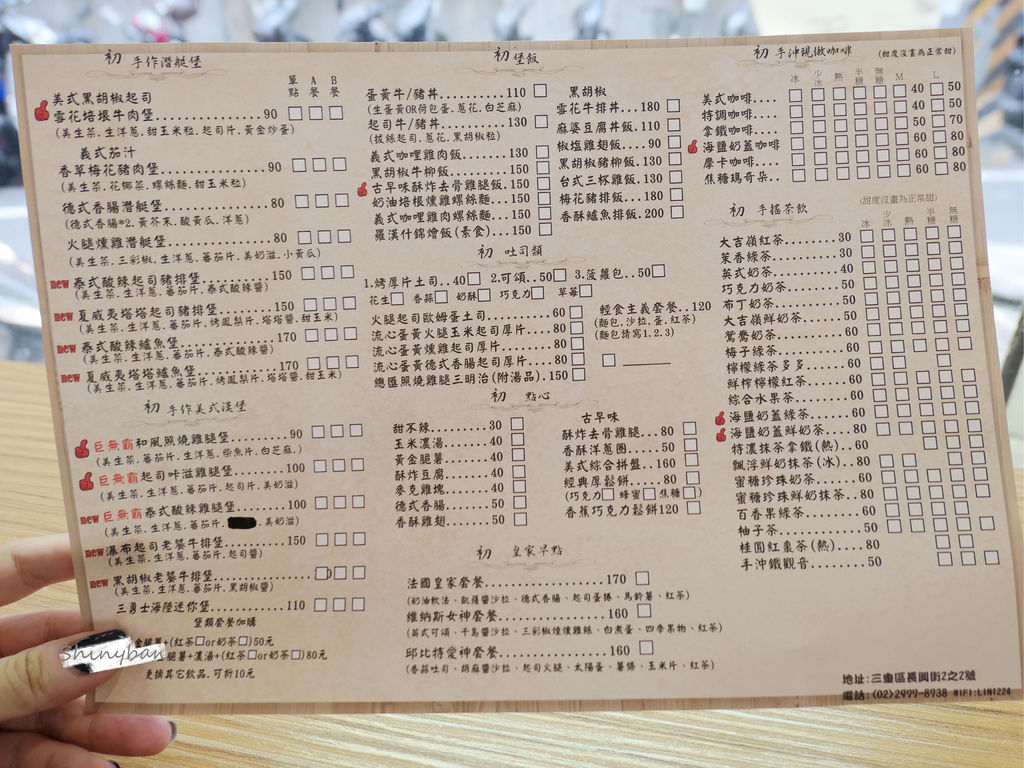 初 手作潛艇堡
單點 A餐 B餐
美式黑胡椒起司
雪花培根牛肉堡..........90
(美生菜.生洋蔥.甜玉米粒.起司片.黃金炒蛋)
義式茄汁
香草梅花豬肉堡..........90
(美生菜.花椰菜.螺絲麵.甜玉米粒)
德式香腸潛艇堡..........80
(德式香腸*2.黃芥末.酸黃瓜.洋蔥)
火腿燻雞潛艇堡..........80
(美生菜.三彩椒.生洋蔥.蕃茄片.美奶滋.小黃瓜)
new 泰式酸辣起司豬排堡..........150
(美生菜.生洋蔥.蕃茄片.泰式酸辣醬)
new 夏威夷塔塔起司豬排堡......150
(美生菜.生洋蔥.蕃茄片.烤鳳梨片.塔塔醬.甜玉米)
new 泰式酸辣鱸魚堡..........170
(美生菜.生洋蔥.蕃茄片.泰式酸辣醬)
new 夏威夷塔塔鱸魚堡..........170
(美生菜.生洋蔥.蕃茄片.烤鳳梨片.塔塔醬.甜玉米)
初 手作美式漢堡
巨無霸和風照燒雞腿堡........90
(美生菜.蕃茄片.生洋蔥.柴魚片.白芝麻.)
巨無霸起司咔滋雞腿堡........100
(美生菜.生洋蔥.蕃茄片.起司片.美奶滋)
new 巨無霸泰式酸辣雞腿堡........100
(美生菜.生洋蔥.蕃茄片. .美奶滋)
new 瀑布起司老饕牛排堡........150
(美生菜.生洋蔥.蕃茄片.起司醬)
new 黑胡椒老饕牛排堡..........
(美生菜.生洋蔥.蕃茄片.黑胡椒醬)
三勇士海陸迷你堡..........110
堡類套餐加購
+(紅茶□or奶茶□)50元
薯+濃湯+(紅茶□or奶茶□)80元
更換其它飲品.可折10元
初 堡飯
蛋黃牛/豬丼..........110
(生蛋黃OR荷包蛋.蔥花.白芝麻)
起司牛/豬丼..........130
(拔絲起司.蔥花.黑胡椒粒)
義式咖哩雞肉飯......130
黑胡椒牛柳飯........150
古早味酥炸去骨雞腿飯.150
奶油培根燻雞螺絲麵...150
義式咖哩雞肉螺絲麵...150
羅漢什錦燴飯(素食)...150
黑胡椒
雪花牛排丼...180
麻婆豆腐丼飯.110
椒鹽雞翅飯...90
黑胡椒豬柳飯.130
台式三杯雞飯.130
梅花豬排飯...180
香酥鱸魚排飯.200
初 吐司類
1.烤厚片土司..40□ 2.可頌..50□ 3.菠蘿包..50□
花生□ 香蒜□ 奶酥□ 巧克力□ 草莓□
火腿起司歐姆蛋土司........60
流心蛋黃火腿玉米起司厚片....80
流心蛋黃燻雞起司厚片......80
流心蛋黃德式香腸起司厚片....80
總匯照燒雞腿三明治(附湯品).150
輕食主義套餐..120
(麵包.沙拉.蛋.紅茶)
(麵包請寫1.2.3)
初 點心
甜不辣........30
玉米濃湯......40
黃金脆薯......40
酥炸豆腐......40
麥克雞塊......40
德式香腸......50
香酥雞翅......50
古早味
酥炸去骨雞腿...80
香酥洋蔥圈.....50
美式綜合拼盤..160
經典厚鬆餅.....80
(巧克力□ 蜂蜜□ 焦糖□)
香蕉巧克力鬆餅120
初 皇家早點
法國皇家套餐....................170
(奶油軟法、凱薩醬沙拉、德式香腸、起司蛋捲、馬鈴薯、紅茶)
維納斯女神套餐..................160
(英式可頌、千島醬沙拉、三彩椒煙燻雞絲、白煮蛋、四季果物、紅茶)
邱比特愛神套餐..................160
(香蒜吐司、胡麻醬沙拉、起司火腿、太陽蛋、薯條、玉米片、紅茶)
初 手沖現做咖啡 (甜度沒畫為正常甜)
冰 少冰 熱 半糖 無糖 M L
美式咖啡.... 40 50
特調咖啡.... 40 50
拿鐵咖啡.... 50 70
海鹽奶蓋咖啡 60 80
摩卡咖啡.... 60 80
焦糖瑪奇朵.. 60 80
初 手搖茶飲 (甜度沒畫為正常甜)
冰 少冰 熱 半糖 無糖
大吉嶺紅茶........30
茉香綠茶..........30
英式奶茶..........40
巧克力奶茶........50
布丁奶茶..........50
大吉嶺鮮奶茶......50
鴛鴦奶茶..........60
梅子綠茶..........60
檸檬綠茶多多......60
鮮榨檸檬紅茶......60
綜合水果茶........60
海鹽奶蓋綠茶......60
海鹽奶蓋鮮奶茶....80
特濃抹茶拿鐵(熱)..60
飄浮鮮奶抹茶(冰)..80
蜜糖珍珠奶茶......60
蜜糖珍珠鮮奶抹茶..80
百香果綠茶........60
柚子茶............50
桂圓紅棗茶(熱)....80
手沖鐵觀音........50
地址:三重區長興街2之2號
電話:(02)2977-8738 WIFI:LIN1224
Shinyban